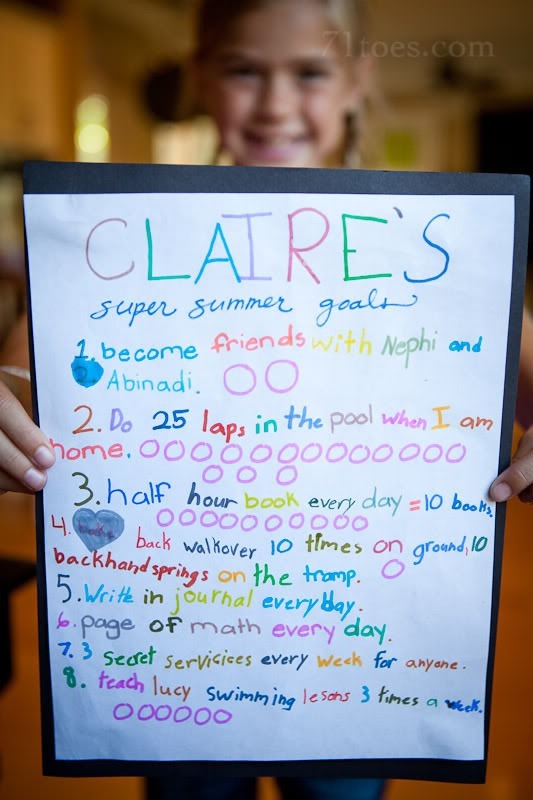 71toes.com
CLAIRE'S
super summer goals
1. become friends with Nephi and
Abinadi.
2. Do 25 laps in the pool when I am
home.
3. half hour book every day = 10 books.
4. back walkover 10 times on ground, 10
backhandsprings on the tramp.
5. Write in journal every day.
6. page of math every day.
7. 3 secret servicices every week for anyone.
8. teach lucy swimming lesons 3 times a week.
71toes.com